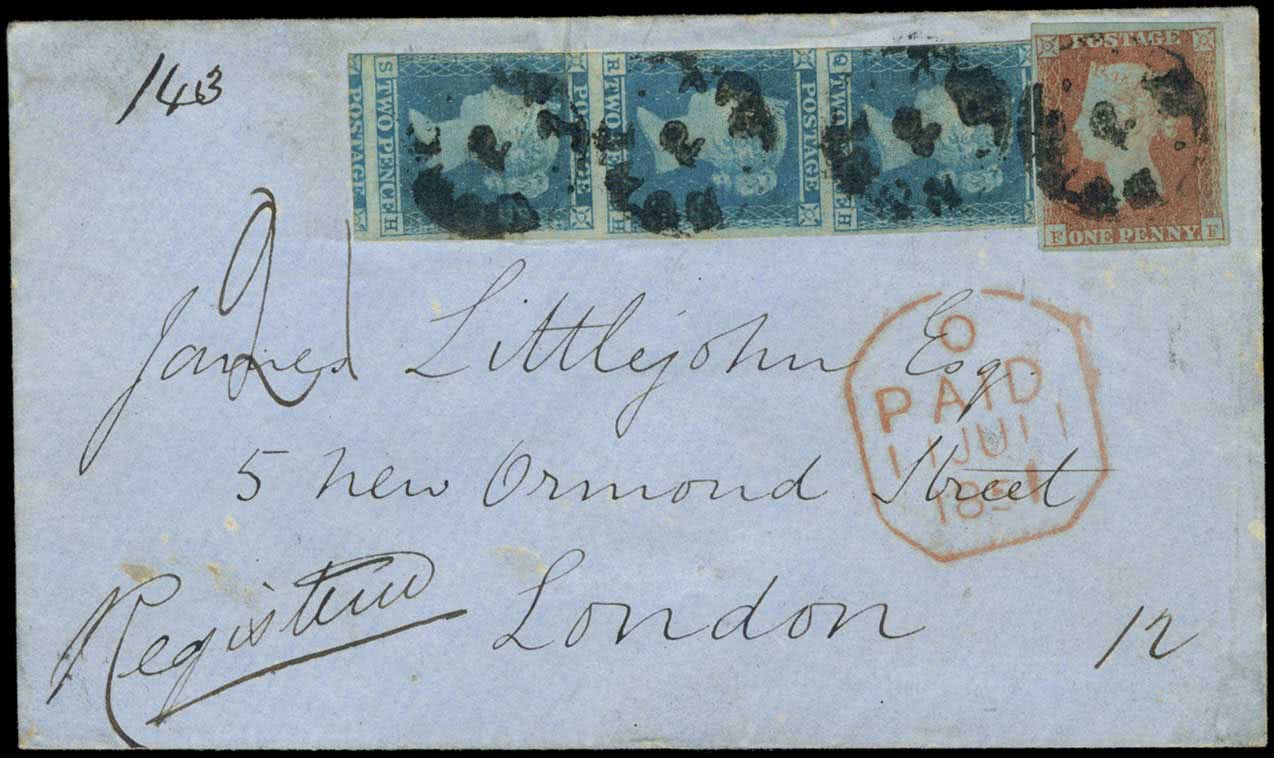 143
S TWO PENCE H
POSTAGE
R TWO PENCE H
POSTAGE
Q TWO PENCE H
POSTAGE
POSTAGE
F ONE PENNY F
James Littlejohn Esq.
5 New Ormond Street
London
Registered
12
PAID
11 JU 11